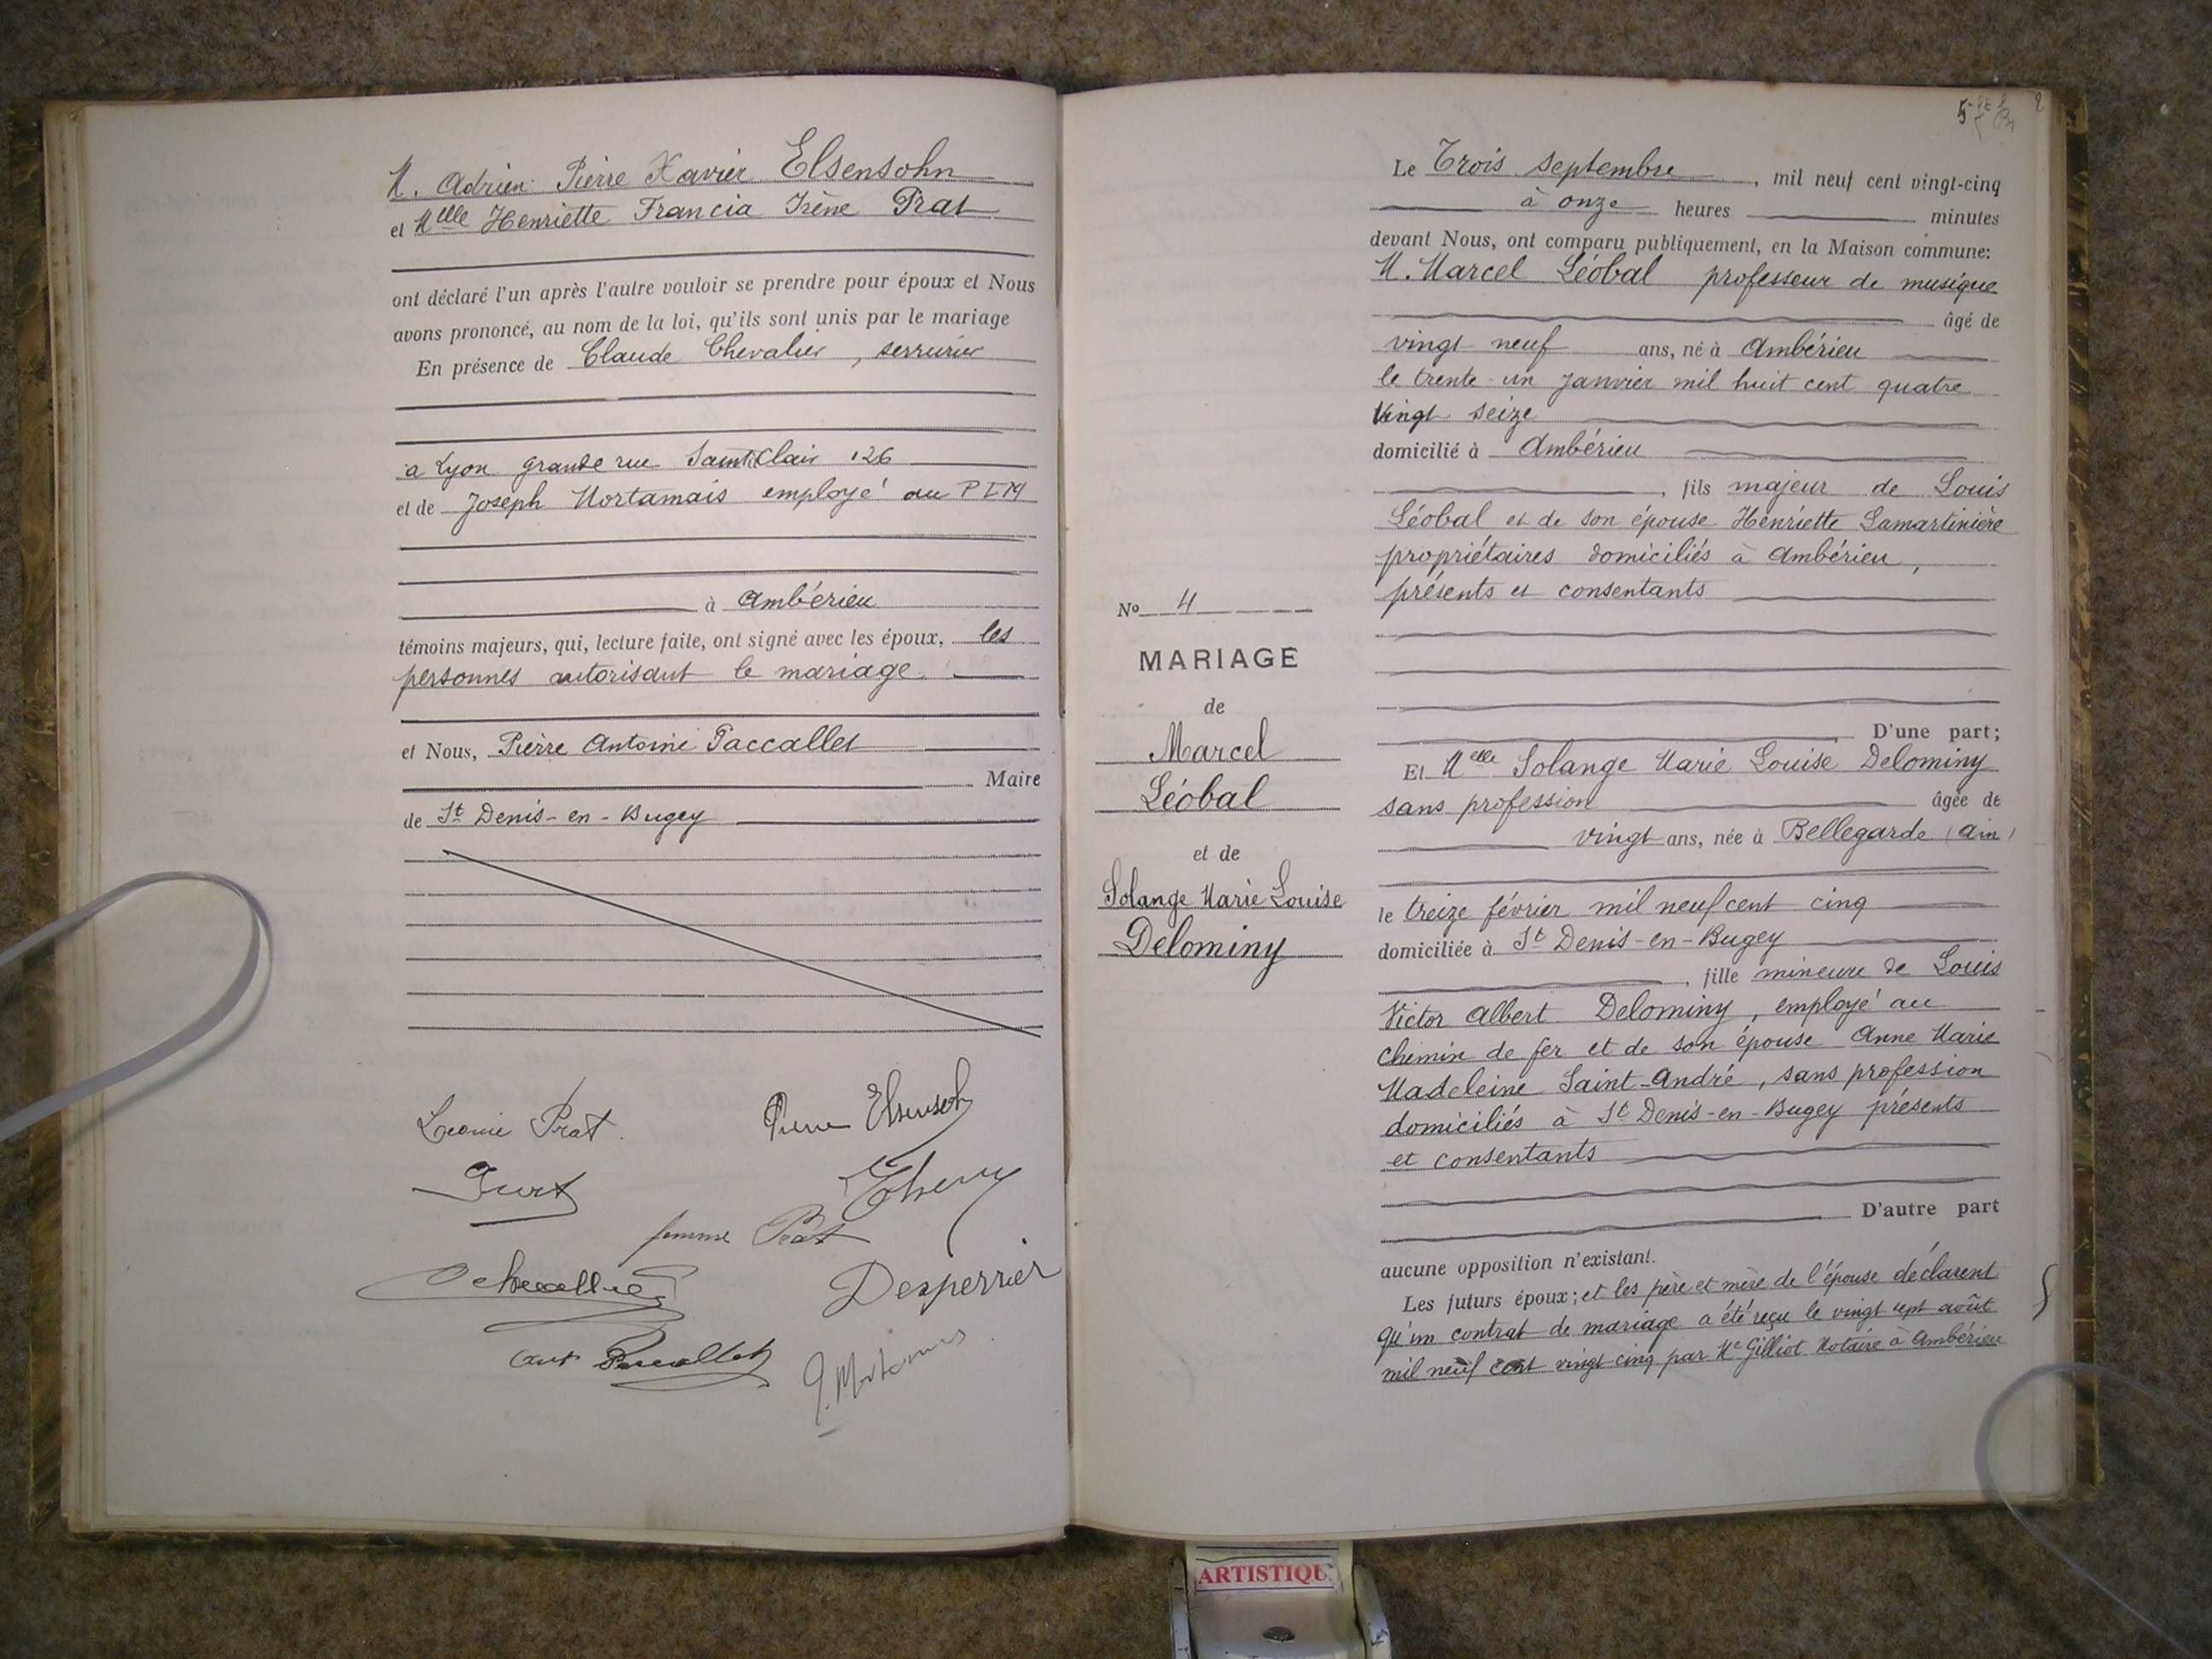 M. Adrien Pierre Xavier Elsensohn
et Melle Henriette Francia Irène Prat
ont déclaré l'un après l'autre vouloir se prendre pour époux et Nous
avons prononcé, au nom de la loi, qu'ils sont unis par le mariage
En présence de Claude Chevalier, serrurier
à Lyon grande rue Saint Clair 126
et de Joseph Mortamais employé au PLM
à Ambérieu
témoins majeurs, qui, lecture faite, ont signé avec les époux, les
personnes autorisant le mariage.
et Nous, Pierre Antoine Paccallet
Maire
de St Denis-en-Bugey
Leonie Prat
Pierre Elsensohn
femme Prat
Desperrier
No 4
MARIAGE
de
Marcel
Léobal
et de
Solange Marie Louise
Delominy
5
Le Trois septembre, mil neuf cent vingt-cinq
à onze heures minutes
devant Nous, ont comparu publiquement, en la Maison commune:
M. Marcel Léobal professeur de musique
âgé de
vingt neuf ans, né à Ambérieu
le trente un janvier mil huit cent quatre
vingt seize
domicilié à Ambérieu
, fils majeur de Louis
Léobal et de son épouse Henriette Lamartinière
propriétaires domiciliés à Ambérieu,
présents et consentants
D'une part;
Et Melle Solange Marie Louise Delominy
sans profession âgée de
vingt ans, née à Bellegarde (Ain)
le treize février mil neuf cent cinq
domiciliée à St Denis-en-Bugey
, fille mineure de Louis
Victor Albert Delominy, employé au
chemin de fer et de son épouse Anne Marie
Madeleine Saint-André, sans profession
domiciliés à St Denis-en-Bugey présents
et consentants
D'autre part
aucune opposition n'existant.
Les futurs époux; et les père et mère de l'épouse déclarent
qu'un contrat de mariage a été reçu le vingt sept août
mil neuf cent vingt cinq par Me Gilliot Notaire à Ambérieu
ARTISTIQU